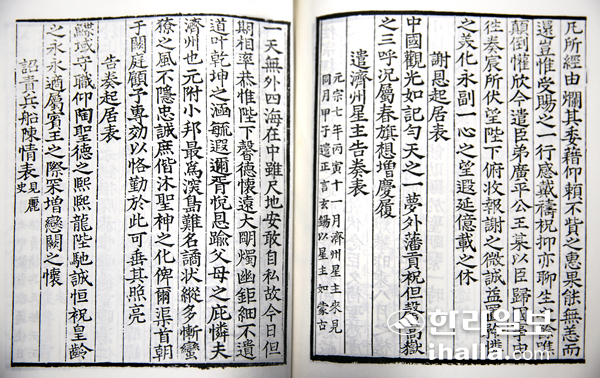 凡所經由爛其委藉仰賴不貲之惠果能無恙而
還豈惟受賜之一行感戴禱祝抑亦聊生之 唯
顛倒懽欣今遣臣弟廣平公王 以臣歸國事由
徃奏宸所伏望陛下俯收報謝之微誠益
之美化永副一心之望遐延億載之休
謝恩起居表
中國觀光如記匀天之一夢外藩貢祝但 高嶽
之三呼况屬春旗想增慶履
遣濟州星主告奏表
元宗七年丙寅十一月濟州星主來見
同月甲子遣正言玄錫以星主如蒙古
一天無外四海在中雖尺地安敢自私故今日但
期相率恭惟陛下馨德懷遠大明燭幽鉅細不遺
道叶乾坤之涵毓遐邇胥悦恩踰父母之庇憐夫
濟州也元附小邦最爲濱島難名謫狀縱多慚蠻
獠之風不隱忠誠庶偕沐聖神之化俾爾渠首朝
于闕庭顧予專効以恪勤於此可垂其照亮
告奏起居表
鰈域守職仰陶聖德之熙熙龍陛馳誠恒祝皇齡
之永永適屬賓王之際冞增戀闕之懷
詔責兵船陳情表 見麗史
한라일보
ihalla.com